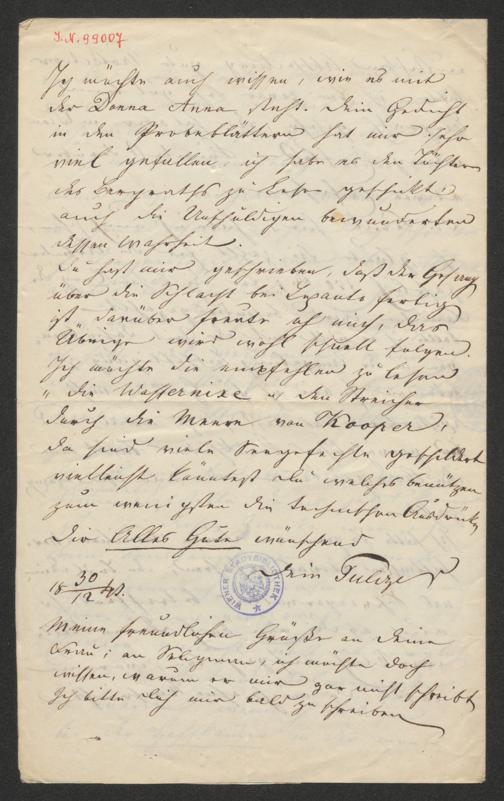 J. N. 99007
Ich möchte auch wissen, wie es mit
der Donna Anna steht. Dein Gedicht
in den Probeblättern hat mir sehr
viel gefallen, ich habe es den Töchtern
des Bergraths zu lesen geschickt,
auch die Unschuldigen bewunderten
dessen Wahrheit.
Du hast mir geschrieben, daß der Gesang
über die Schlacht bei Lepanto fertig
ist darüber freute ich mich, das
Übrige wird wohl schnell folgen.
Ich möchte dir empfehlen zu lesen
„die Wassernixe
durch die Meere von Kooper,
da sind viele Seegefechte geschildert
vielleicht könntest du welches benützen
zum wenigsten die technischen Ausdrücke
Dir Alles Gute wünschend
Dein
18 30/12
WIENER STADTBIBLIOTHEK
Meine freundlichen Grüße an Deine
Frau; an ich möchte doch
wissen, warum er mir gar nicht schreibt
Ich bitte dich mir bald zu schreiben